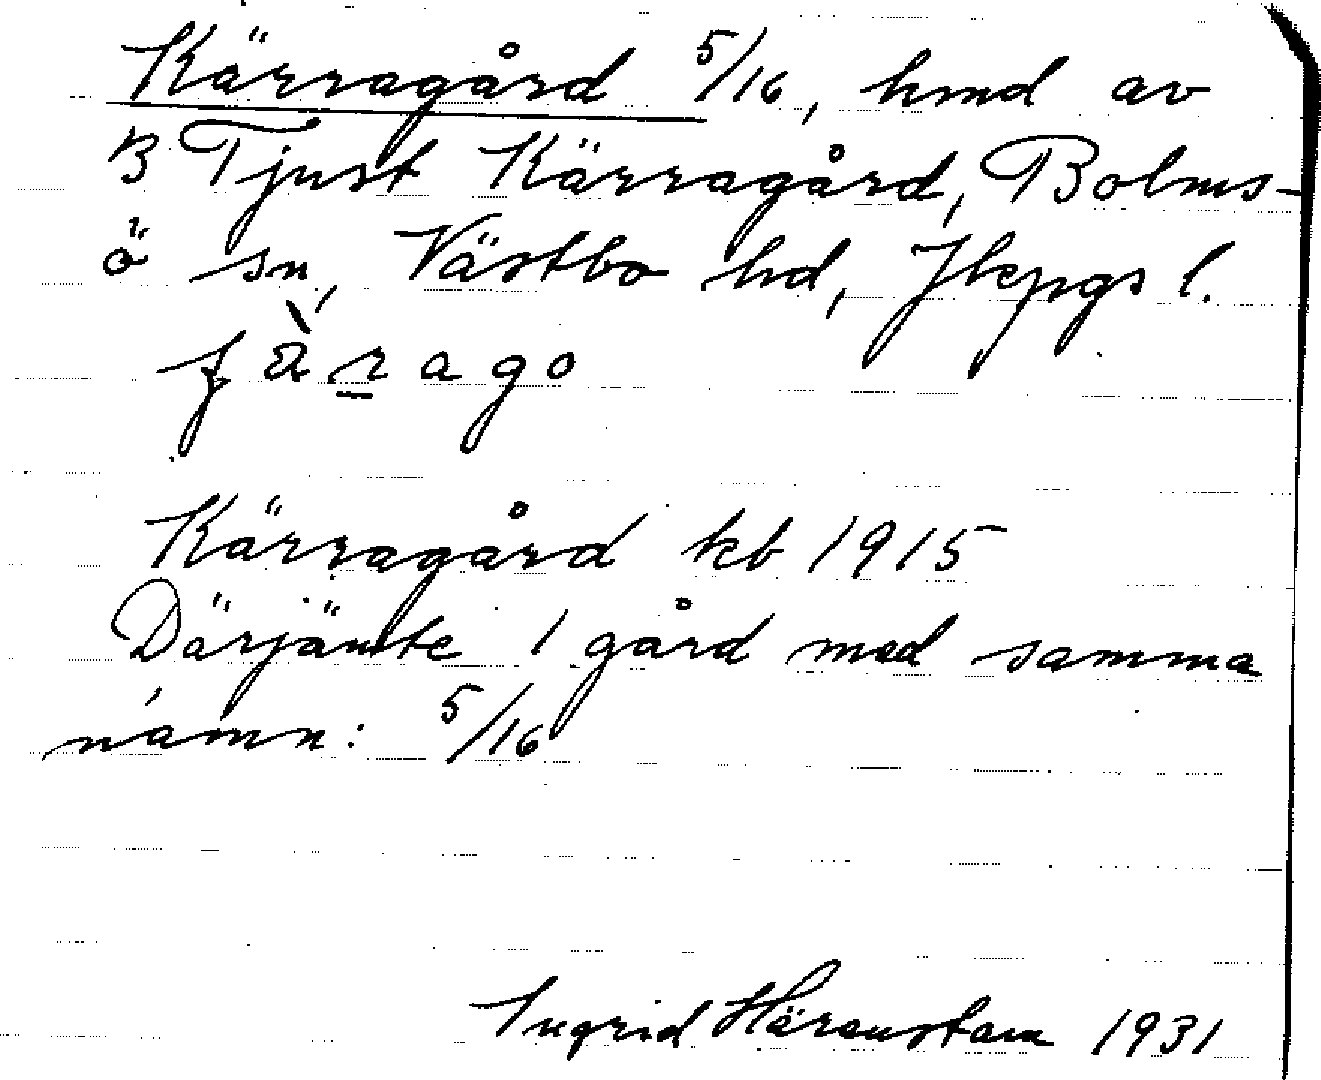 Kärragård 5/16, hmd av
B Tjust Kärragård, Bolms-
ö sn, Västbo hd, Jkpgs l.
Kärragård kb 1915
Därjämte 1 gård med samma
namn: 5/16
Ingrid Härenstam 1931